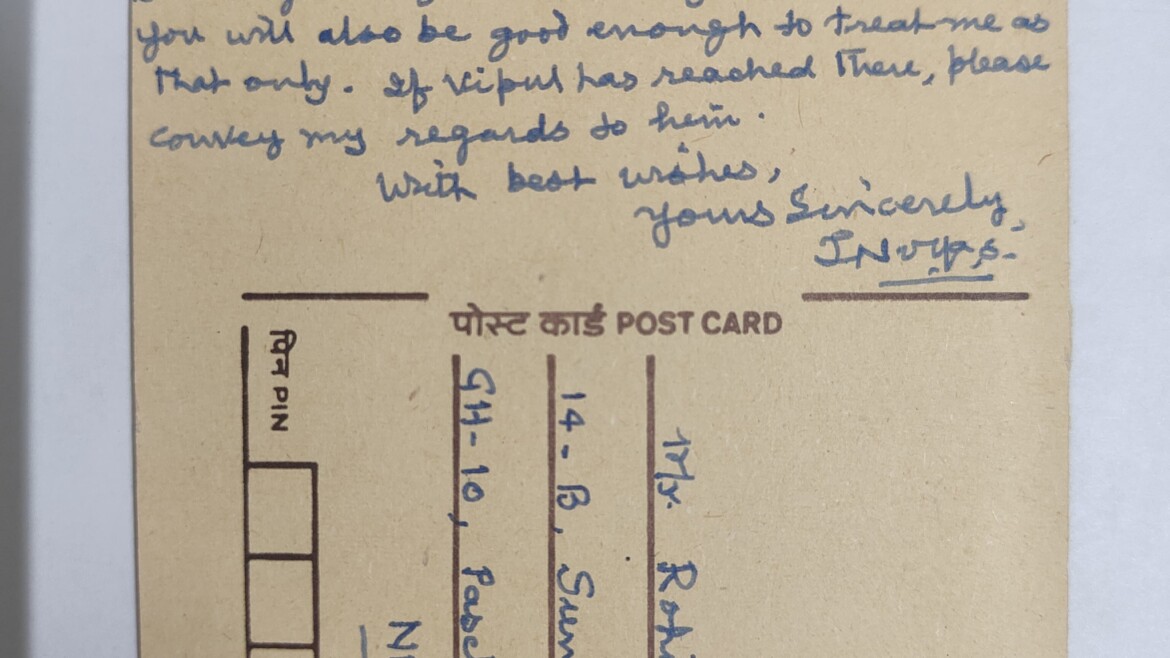 you will also be good enough to treat me as
that only. If Vipul has reached there, please
convey my regards to him.
With best wishes,
Yours Sincerely,
पोस्ट कार्ड POST CARD
पिन PIN
14-B,
GH-10,